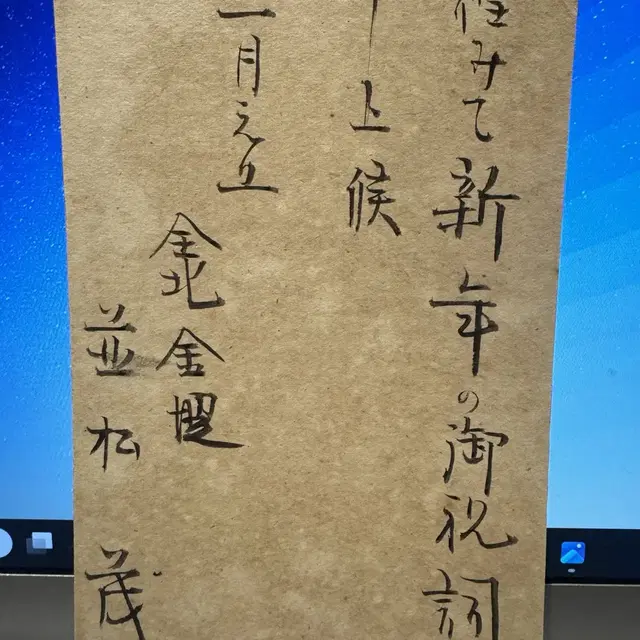 謹みて新年の御祝詞
申上候
一月元旦
金北金堤
並松 茂